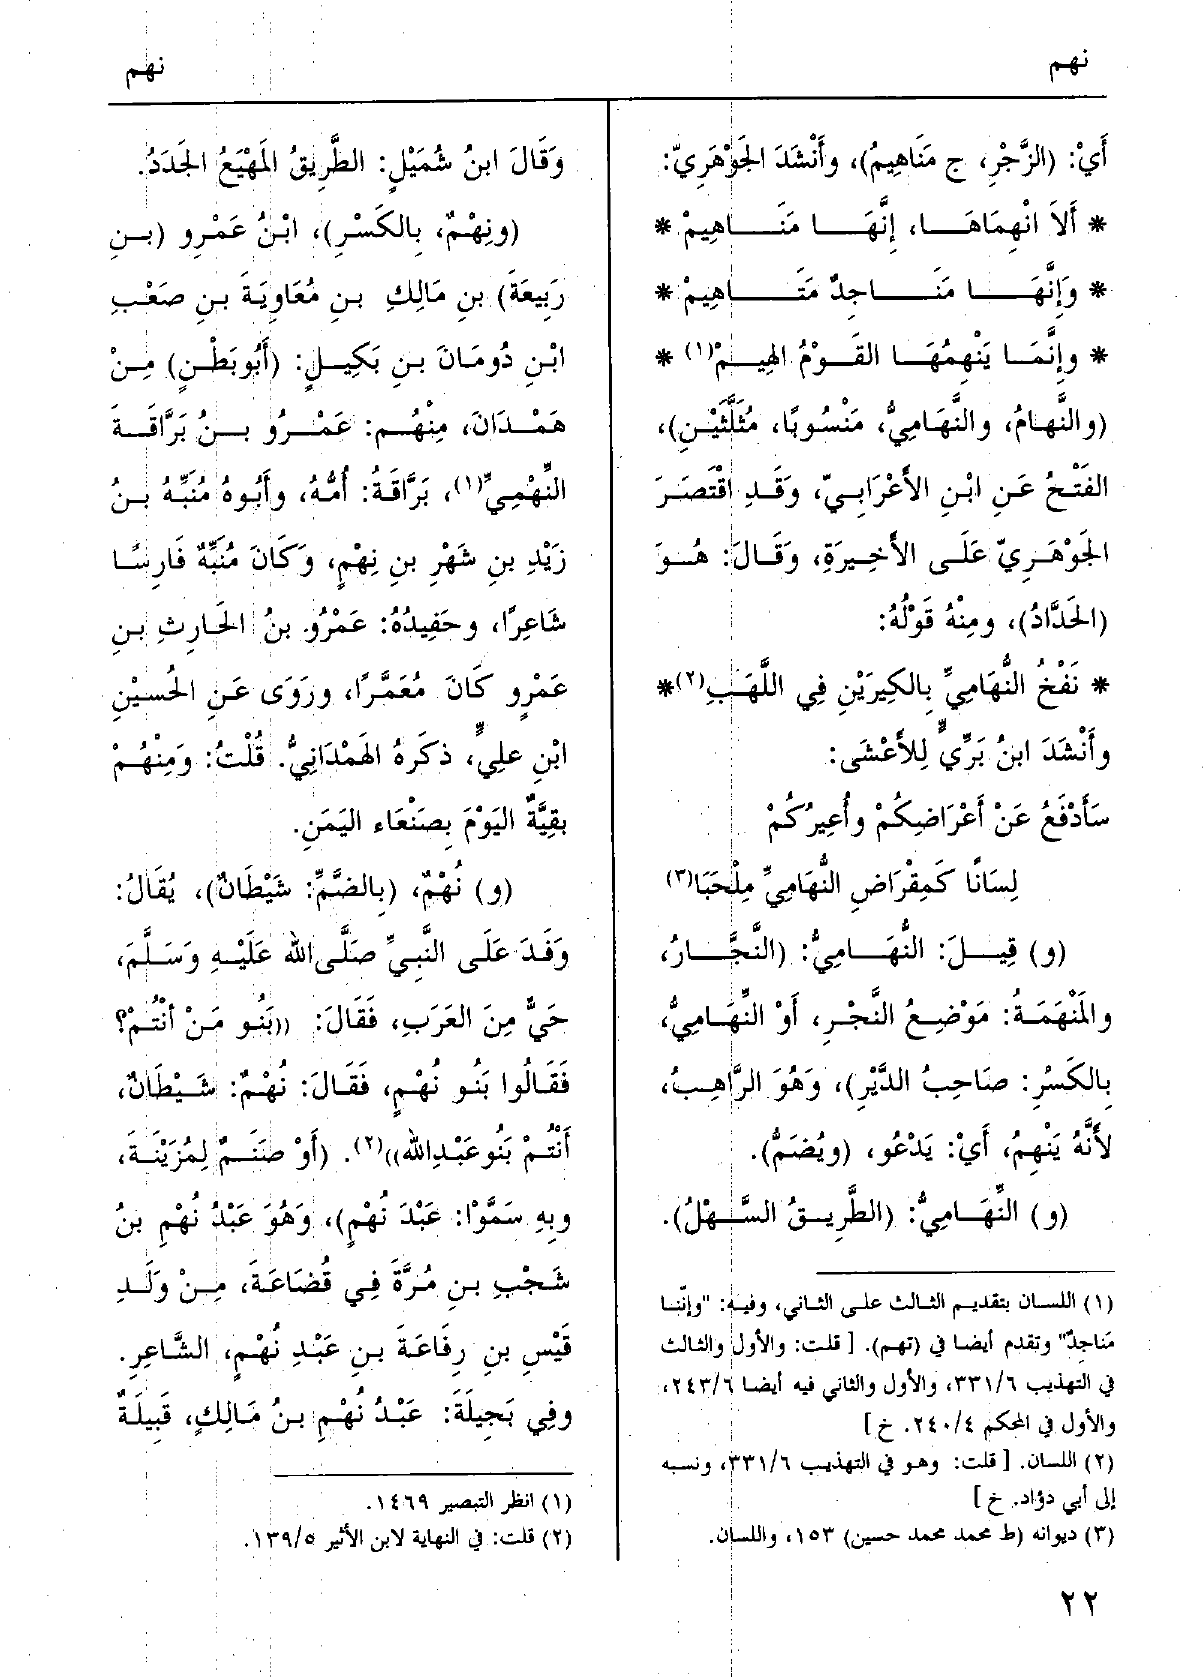 نهم
نهم
أَيْ: (الزَّجْرِ، ج مَنَاهِيمُ)، وأَنْشَدَ الجَوْهَرِيّ:
* أَلاَ انْهِمَاهَا، إِنَّهَا مَنَاهِيمْ *
* وَإِنَّهَا مَنَاجِدٌ مَتَاهِيمْ *
* وإِنَّمَا يَنْهِمُهَا القَوْمُ الهِيمْ(١) *
(والنَّهامُ، والنَّهَامِيُّ، مَنْسُوبًا، مُثَلَّثَيْنِ)،
الفَتْحُ عَنِ ابْنِ الأَعْرَابِيّ، وَقَدِ اقْتَصَرَ
الجَوْهَرِيّ عَلَى الأَخِيرَةِ، وَقَالَ: هُوَ
(الحَدَّادُ)، ومِنْهُ قَوْلُهُ:
* نَفْخُ النُّهَامِيِّ بِالكِيرَيْنِ فِي اللَّهَبِ(٢)*
وأَنْشَدَ ابنُ بَرِّيٍّ لِلأَعْشَى:
سَأَدْفَعُ عَنْ أَعْرَاضِكُمْ وأُعِيرُكُمْ
لِسَانًا كَمِقْرَاضِ النُّهَامِيِّ مِلْحَبَا(٣)
(و) قِيلَ: النُّهَامِيُّ: (النَّجَّارُ،
والمَنْهَمَةُ: مَوْضِعُ النَّجْرِ، أَوْ النِّهَامِيُّ،
بِالكَسْرِ: صَاحِبُ الدَّيْرِ)، وَهُوَ الرَّاهِبُ،
لأَنَّهُ يَنْهِمُ، أَيْ: يَدْعُو، (ويُضَمُّ).
(و) النِّهَامِيُّ: (الطَّرِيقُ السَّهْلُ).
(١) اللسان بتقديم الثالث على الثاني، وفيه: "وإنّنا
مَناجِدٌ" وتقدم أيضا في (تهم). [ قلت: والأول والثالث
في التهذيب ٣٣١/٦، والأول والثاني فيه أيضا ٢٤٣/٦،
والأول في المحكم ٢٤٠/٤. خ ]
(٢) اللسان. [ قلت: وهو في التهذيب ٣٣١/٦، ونسبه
إلى أبي دؤاد. خ ]
(٣) ديوانه (ط محمد محمد حسين) ١٥٣، واللسان.
وَقَالَ ابنُ شُمَيْلٍ: الطَّرِيقُ المَهْيَعُ الجَدَدُ.
(ونِهْمٌ، بِالكَسْرِ)، ابْنُ عَمْرِو (بنِ
رَبِيعَةَ) بنِ مَالِكِ بنِ مُعَاوِيَةَ بنِ صَعْبِ
ابْنِ دُومَانَ بنِ بَكِيلٍ: (أَبُوبَطْنٍ) مِنْ
هَمْدَانَ، مِنْهُم: عَمْرُو بنُ بَرَّاقَةَ
النِّهْمِيِّ(١)، بَرَّاقَةُ: أُمُّهُ، وأَبُوهُ مُنَبِّهُ بنُ
زَيْدِ بنِ شَهْرِ بنِ نِهْمٍ، وَكَانَ مُنَبِّهٌ فَارِسًا
شَاعِرًا، وحَفِيدُهُ: عَمْرُو بنُ الحَارِثِ بنِ
عَمْرٍو كَانَ مُعَمَّرًا، ورَوَى عَنِ الحُسَيْنِ
ابْنِ علِيٍّ، ذكَرهُ الهَمْدَانِيُّ. قُلْتُ: وَمِنْهُمْ
بقِيَّةٌ اليَوْمَ بِصَنْعَاء اليَمَنِ.
(و) نُهْمٌ، (بِالضَّمِّ: شَيْطَانٌ)، يُقَالُ:
وَفَدَ عَلَى النَّبِيِّ صَلَّى الله عَلَيْهِ وَسَلَّمَ،
حَيٌّ مِنَ العَرَبِ، فَقَالَ: ((بَنُو مَنْ أَنْتُمْ؟
فَقَالُوا بَنُو نُهْمٍ، فَقَالَ: نُهْمٌ: شَيْطَانٌ،
أَنْتُمْ بَنُو عَبْدِالله))(٢). (أَوْ صَنَمٌ لِمُزَيْنَةَ،
وبِهِ سَمَّوْا: عَبْدَ نُهْمٍ)، وَهُوَ عَبْدُ نُهْمِ بنُ
شَجْبِ بنِ مُرَّةَ فِي قُضَاعَةَ، مِنْ وَلَدِ
قَيْسِ بنِ رِفَاعَةَ بنِ عَبْدِ نُهْمٍ، الشَّاعِرِ.
وفِي بَجِيلَةَ: عَبْدُ نُهْمِ بنُ مَالِكٍ، قَبِيلَةٌ
(١) انظر التبصير ١٤٦٩.
(٢) قلت: في النهاية لابن الأثير ١٣٩/٥.
٢٢